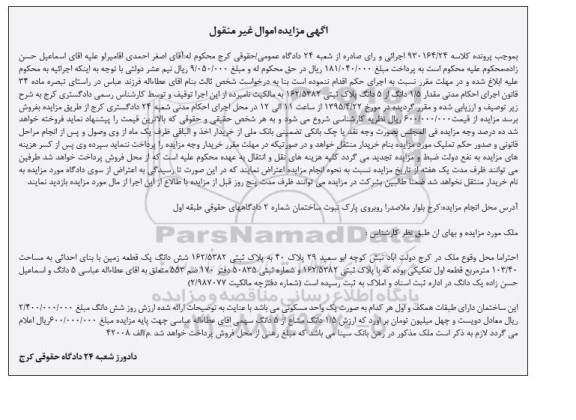 آگهی مزایده اموال غیر منقول
بموجب پرونده کلاسه 930164/24 اجرائی و رای صادره از شعبه 24 دادگاه عمومی/حقوقی کرج محکوم له:آقای اصغر احمدی اقامیرلو علیه اقای اسماعیل حسن
زاده‌محکوم علیه محکوم است به پرداخت مبلغ 181/040/000 ریال در حق محکوم له و مبلغ 9/050/000 ریال نیم عشر دولتی با توجه به اینکه اجرائیه به محکوم
علیه ابلاغ شده و در مهلت مقرر نسبت به اجرای حکم اقدام ننموده است بنا به درخواست شخص ثالث بنام اقای عطااله فرزند عباس در راستای تبصره ماده 34
قانون اجرای احکام مدنی مقدار 1/5 دانگ از 5 دانگ پلاک ثبتی 162/5382 به مالکیت نامبرده از این اجرا توقیف و توسط کارشناس رسمی دادگستری کرج به شرح
زیر توصیف و ارزیابی شده و مقرر گردیده در مورخ 1395/4/22 از ساعت 11 الی 12 در محل اجرای احکام مدنی شعبه 24 دادگستری کرج از طریق مزایده بفروش
برسد مزایده از قیمت 600/000/000 ریال نظریه کارشناسی شروع می شود و به هر شخص حقیقی و حقوقی که بالاترین قیمت را پیشنهاد نماید فروخته خواهد
شد ده درصد وجه مزایده فی المجلس بصورت وجه نقد یا چک بانکی تضمینی بانک ملی از خریدار اخذ و الباقی ظرف یک ماه از وی وصول و پس از انجام مراحل
قانونی و صدور حکم تملیک مورد مزایده بنام خریدار منتقل خواهد و در صورتیکه در مهلت مقرر خریدار وجه مزایده را پرداخت ننماید سپرده وی پس از کسر هزینه
های مزایده به نفع دولت ضبط و مزایده تجدید می گردد کلیه هزینه های نقل و انتقال به عهده محکوم علیه است که از محل فروش پرداخت خواهد شد طرفین
می توانند ظرف مدت یک هفته از تاریخ مزایده نسبت به نحوه انجام مزایده اعتراض نمایند که در این صورت تا رسیدگی به اعتراض از سوی دادگاه مورد مزایده به
نام خریدار منتقل نخواهد شد ضمناً طالبین بشرکت در مزایده می توانند ظرف مدت پنج روز قبل از مزایده با طلاع از این اجرا از مال مورد مزایده بازدید نمایند
آدرس محل انجام مزایده:کرج بلوار ملاصدرا روبروی پارک نبوت ساختمان شماره 2 دادگاههای حقوقی طبقه اول
ملک مورد مزایده و بهای ان طبق نظر کارشناس :
احتراما محل وقوع ملک در کرج دولت اباد نبش کوچه ابو سعید 29 پلاک 40 به پلاک ثبتی 162/5382 شش دانگ یک قطعه زمین با بنای احداثی به مساحت
103/40 مترمربع قطعه اول تفکیکی بوده که با پلاک ثبتی 162/5382 و شماره ثبتی 50835 دفتر 170 صم 553 متعلق به اقای عطااله عباسی 5 دانگ و اسماعیل
حسن زاده یک دانگ در اداره ثبت اسناد و املاک به ثبت رسیده است (شماره دفترچه مالکیت 2/987077)
این ساختمان دارای طبقات همکف و اول هر کدام به صورت یک واحد مسکونی می باشد با عنایت به توضیحات ارائه شده ارزش روز شش دانگ مبلغ 2/400/000/000
ریال معادل دویست و چهل میلیون تومان بر اورد که ارزش 1/5 دانگ مشاع از 5 دانگ سهمی اقای عطااله عباسی جهت پایه مزایده مبلغ 600/000/000ریال اعلام
می گردد لازم به ذکر است ملک مذکور در رهن بانک سینا می باشد که مبلغ رهنی از محل فروش پرداخت خواهد شد .م/الف 42008
دادورز شعبه 24 دادگاه حقوقی کرج
ParsNamadData
پایگاه اطلاع رسانی مناقصه و مزایده